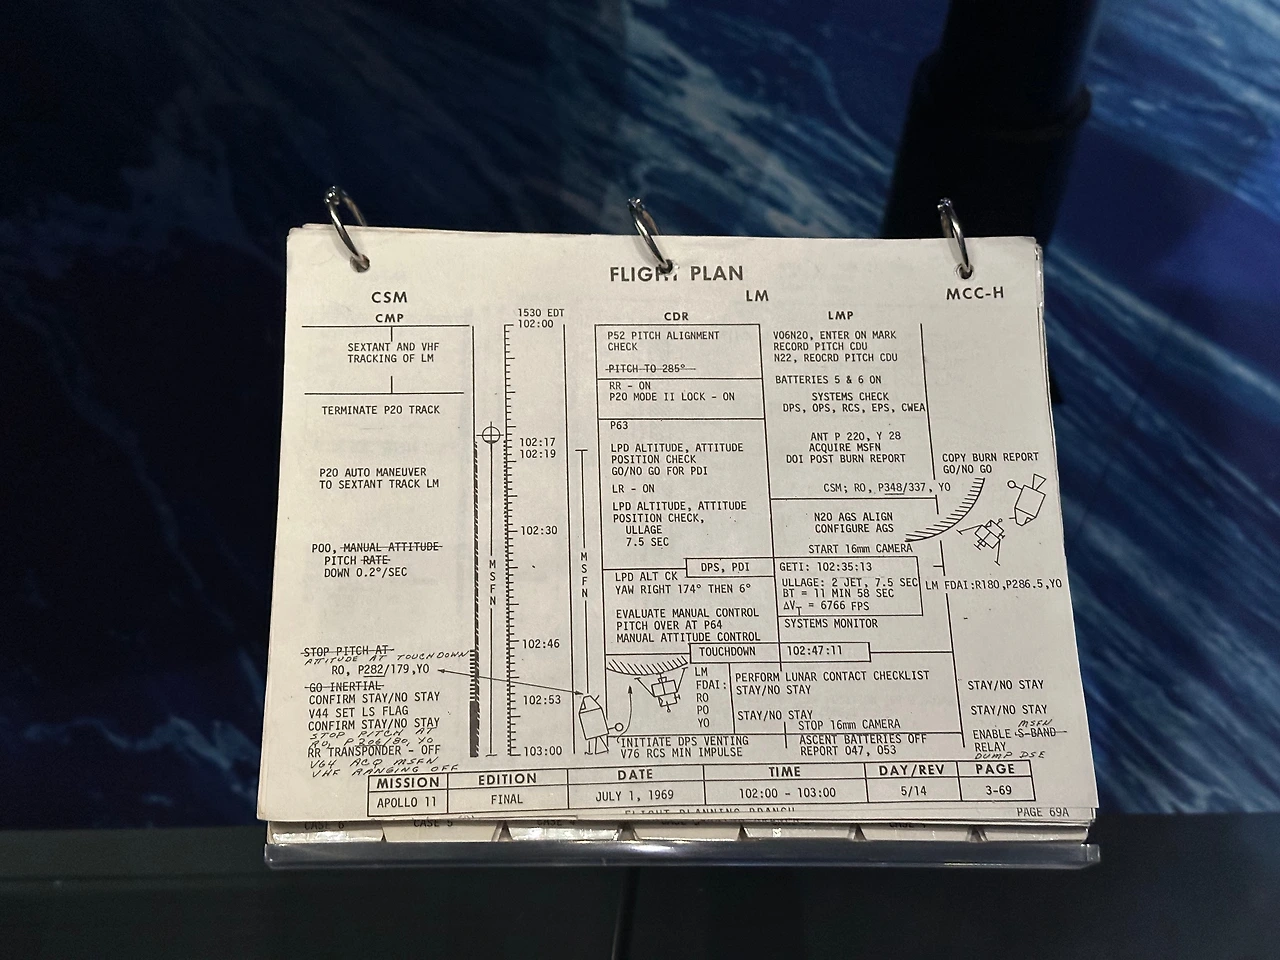 FLIGHT PLAN
CSM
LM
MCC-H
CMP
CDR
LMP
SEXTANT AND VHF
TRACKING OF LM
TERMINATE P20 TRACK
P20 AUTO MANEUVER
TO SEXTANT TRACK LM
P00, MANUAL ATTITUDE
PITCH RATE
DOWN 0.2°/SEC
STOP PITCH AT
ATTITUDE AT TOUCHDOWN
RO, P282/179,YO
GO INERTIAL
CONFIRM STAY/NO STAY
V44 SET LS FLAG
CONFIRM STAY/NO STAY
STOP PITCH AT
RR TRANSPONDER - OFF
V64 ACQ MSFN
VHF RANGING OFF
1530 EDT
102:00
102:17
102:19
102:30
102:46
102:53
103:00
MSFN
MSFN
P52 PITCH ALIGNMENT
CHECK
PITCH TO 285°
RR - ON
P20 MODE II LOCK - ON
P63
LPD ALTITUDE, ATTITUDE
POSITION CHECK
GO/NO GO FOR PDI
LR - ON
LPD ALTITUDE, ATTITUDE
POSITION CHECK,
ULLAGE
7.5 SEC
DPS, PDI
LPD ALT CK
YAW RIGHT 174° THEN 6°
EVALUATE MANUAL CONTROL
PITCH OVER AT P64
MANUAL ATTITUDE CONTROL
TOUCHDOWN
102:47:11
LM
FDAI:
RO
PO
YO
INITIATE DPS VENTING
V76 RCS MIN IMPULSE
V06N20, ENTER ON MARK
RECORD PITCH CDU
N22, REOCRD PITCH CDU
BATTERIES 5 & 6 ON
SYSTEMS CHECK
DPS, OPS, RCS, EPS, CWEA
ANT P 220, Y 28
ACQUIRE MSFN
DOI POST BURN REPORT
CSM; RO, P348/337, YO
N20 AGS ALIGN
CONFIGURE AGS
START 16mm CAMERA
GETI: 102:35:13
ULLAGE: 2 JET, 7.5 SEC
BT = 11 MIN 58 SEC
ΔVT = 6766 FPS
SYSTEMS MONITOR
PERFORM LUNAR CONTACT CHECKLIST
STAY/NO STAY
STAY/NO STAY
STOP 16mm CAMERA
ASCENT BATTERIES OFF
REPORT 047, 053
COPY BURN REPORT
GO/NO GO
LM FDAI:R180,P286.5,YO
STAY/NO STAY
STAY/NO STAY
MSFN
ENABLE S-BAND
RELAY
DUMP DSE
MISSION EDITION DATE TIME DAY/REV PAGE
APOLLO 11 FINAL JULY 1, 1969 102:00 - 103:00 5/14 3-69
FLIGHT PLANNING BRANCH
PAGE 69A